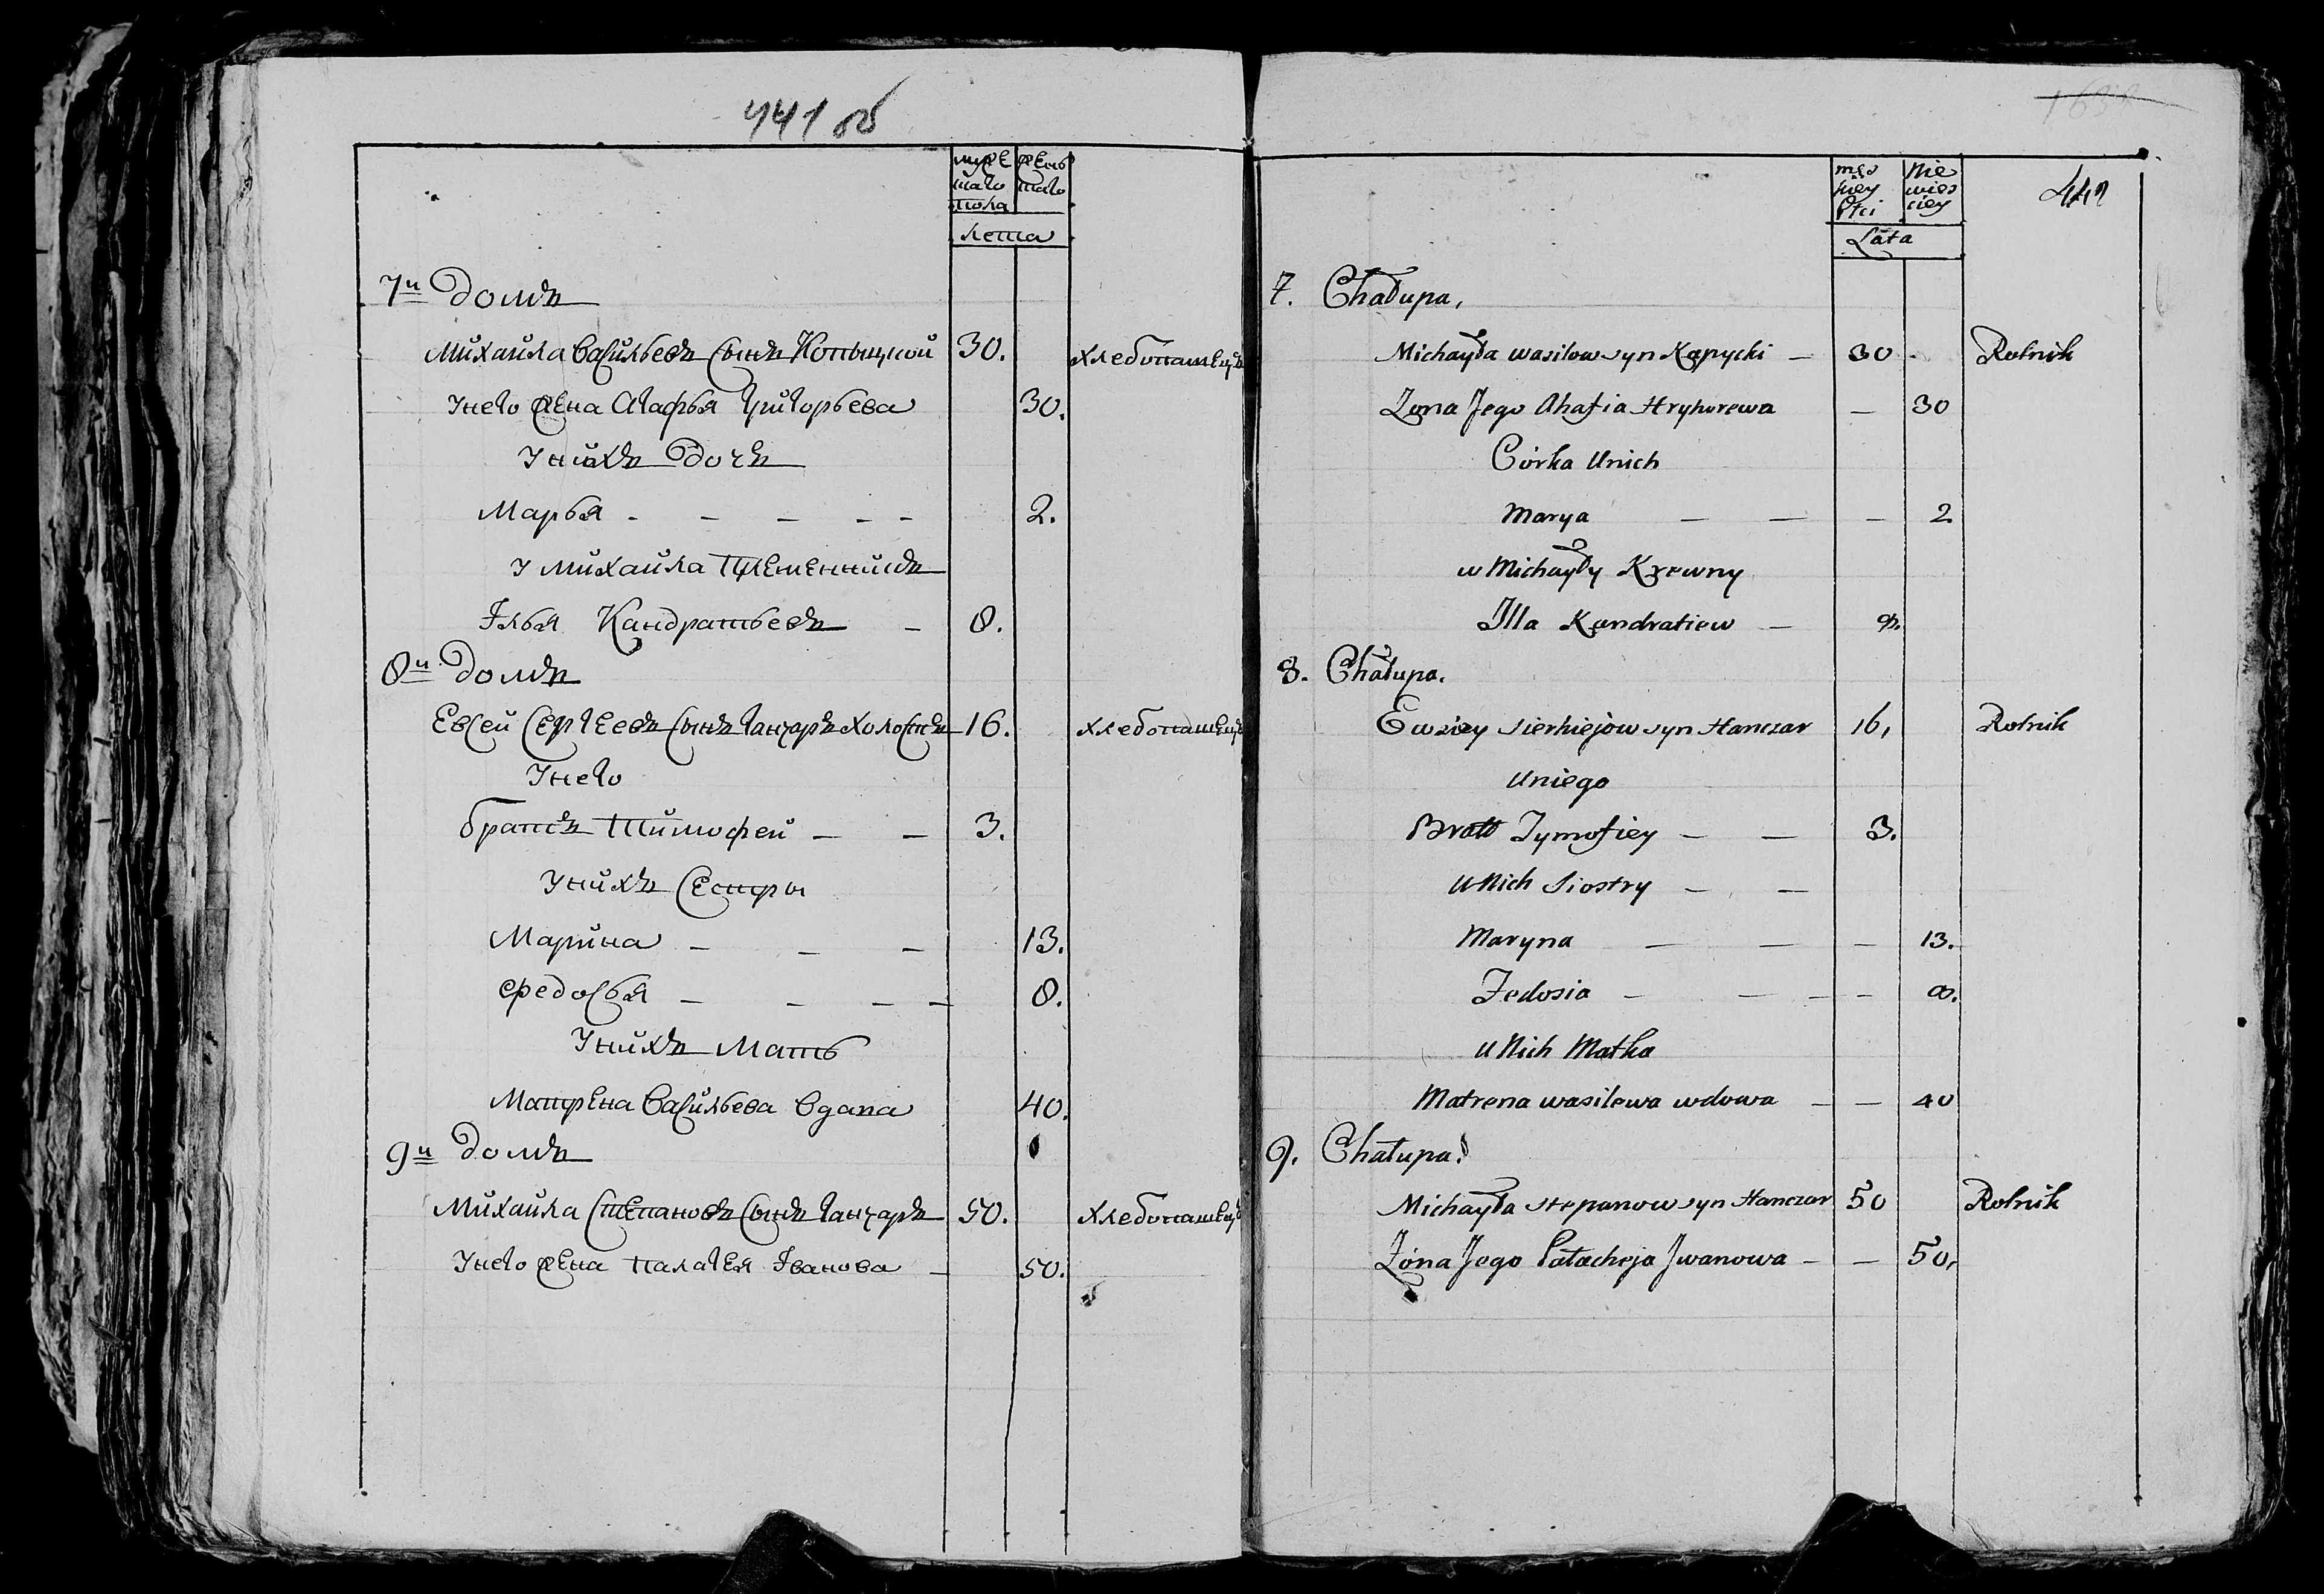 441 об
муже женс
каго каго
пола
лета
7й домъ
Михаила Васильевъ сынъ Копыцкой 30. хлебопашецъ
У него жена Агафья Григорьева 30.
У нихъ дочь
Марья - - - - - 2.
У Михаила племенникъ
Илья Кандратьевъ - 8.
8й домъ
Евсей Сергеевъ сынъ Ганчаръ холостъ 16. хлебопашецъ
У него
братъ Тимофей - - 3.
У нихъ сестры
Марина - - - 13.
Федосья - - - - 8.
У нихъ мать
Матрена Васильева вдава 40.
9й домъ
Михаила Степановъ сынъ Ганчаръ 50. хлебопашецъ
У него жена Палагея Иванова - 50.
442
męs Nie
kiey wies
Płci ciey
Lata
7. Chałupa,
Michayła wasilow syn Kapycki - 30 - Rolnik
Zona Jego Ahafia Hryhorewa - 30
Córka Unich
Marya - - - 2.
u Michayły Krewny
Illa Kandratiew - 8.
8. Chałupa.
Ewsiey Sierhiejow syn Hanczar 16, Rolnik
Uniego
Bratt Tymofiey - - 3.
u Nich Siostry - -
Maryna - - - 13.
Fedosia - - - - 8.
u Nich Matka
Matrena wasilewa wdowa - - 40
9. Chałupa.
Michayła Stepanow syn Hanczar 50 Rolnik
Zóna Jego Pałacheja Jwanowa - - 50,